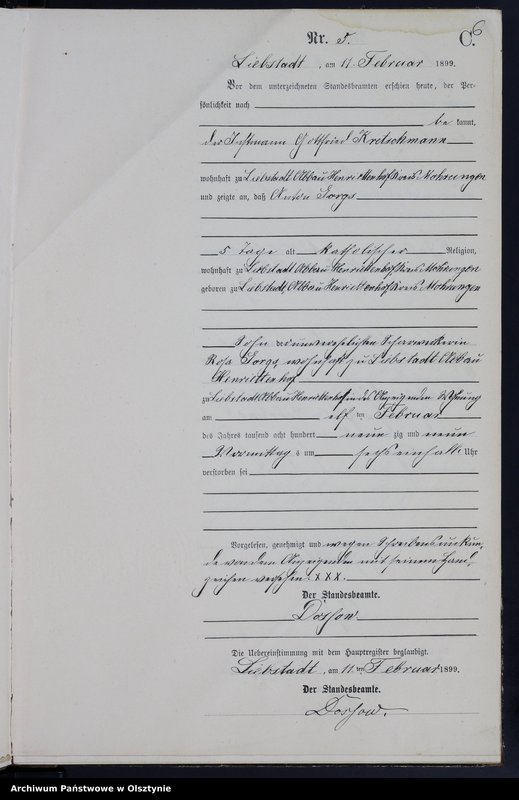 6
Nr. 5. C.
Liebstadt, am 11. Februar 1899.
Vor dem unterzeichneten Standesbeamten erschien heute, der Per-
sönlichkeit nach
be kannt,
der Instmann Gottfried Kretschmann
wohnhaft zu Liebstadt Abbau Henriettenhof Kreis Mohrungen
und zeigte an, daß Anton Sorgs
5 Tage alt katholischer Religion,
wohnhaft zu Liebstadt Abbau Henriettenhof Kreis Mohrungen
geboren zu Liebstadt, Abbau Henriettenhof Kreis Mohrungen
Sohn der unverehelichten Scharwerkerin
Rosa Sorgs, wohnhaft zu Liebstadt Abbau
Henriettenhof
zu Liebstadt Abbau Henriettenhof in des Anzeigenden Wohnung
am elf ten Februar
des Jahres tausend acht hundert neun zig und neun
Vormittag s um sechs einhalb Uhr
verstorben sei
Vorgelesen, genehmigt und wegen Schreibensunkun-
de von dem Anzeigenden mit seinem Hand-
zeichen versehen. X X X.
Der Standesbeamte.
Dossow
Die Uebereinstimmung mit dem Hauptregister beglaubigt.
Liebstadt, am 11 ten Februar 1899.
Der Standesbeamte.
Dossow.
Archiwum Państwowe w Olsztynie